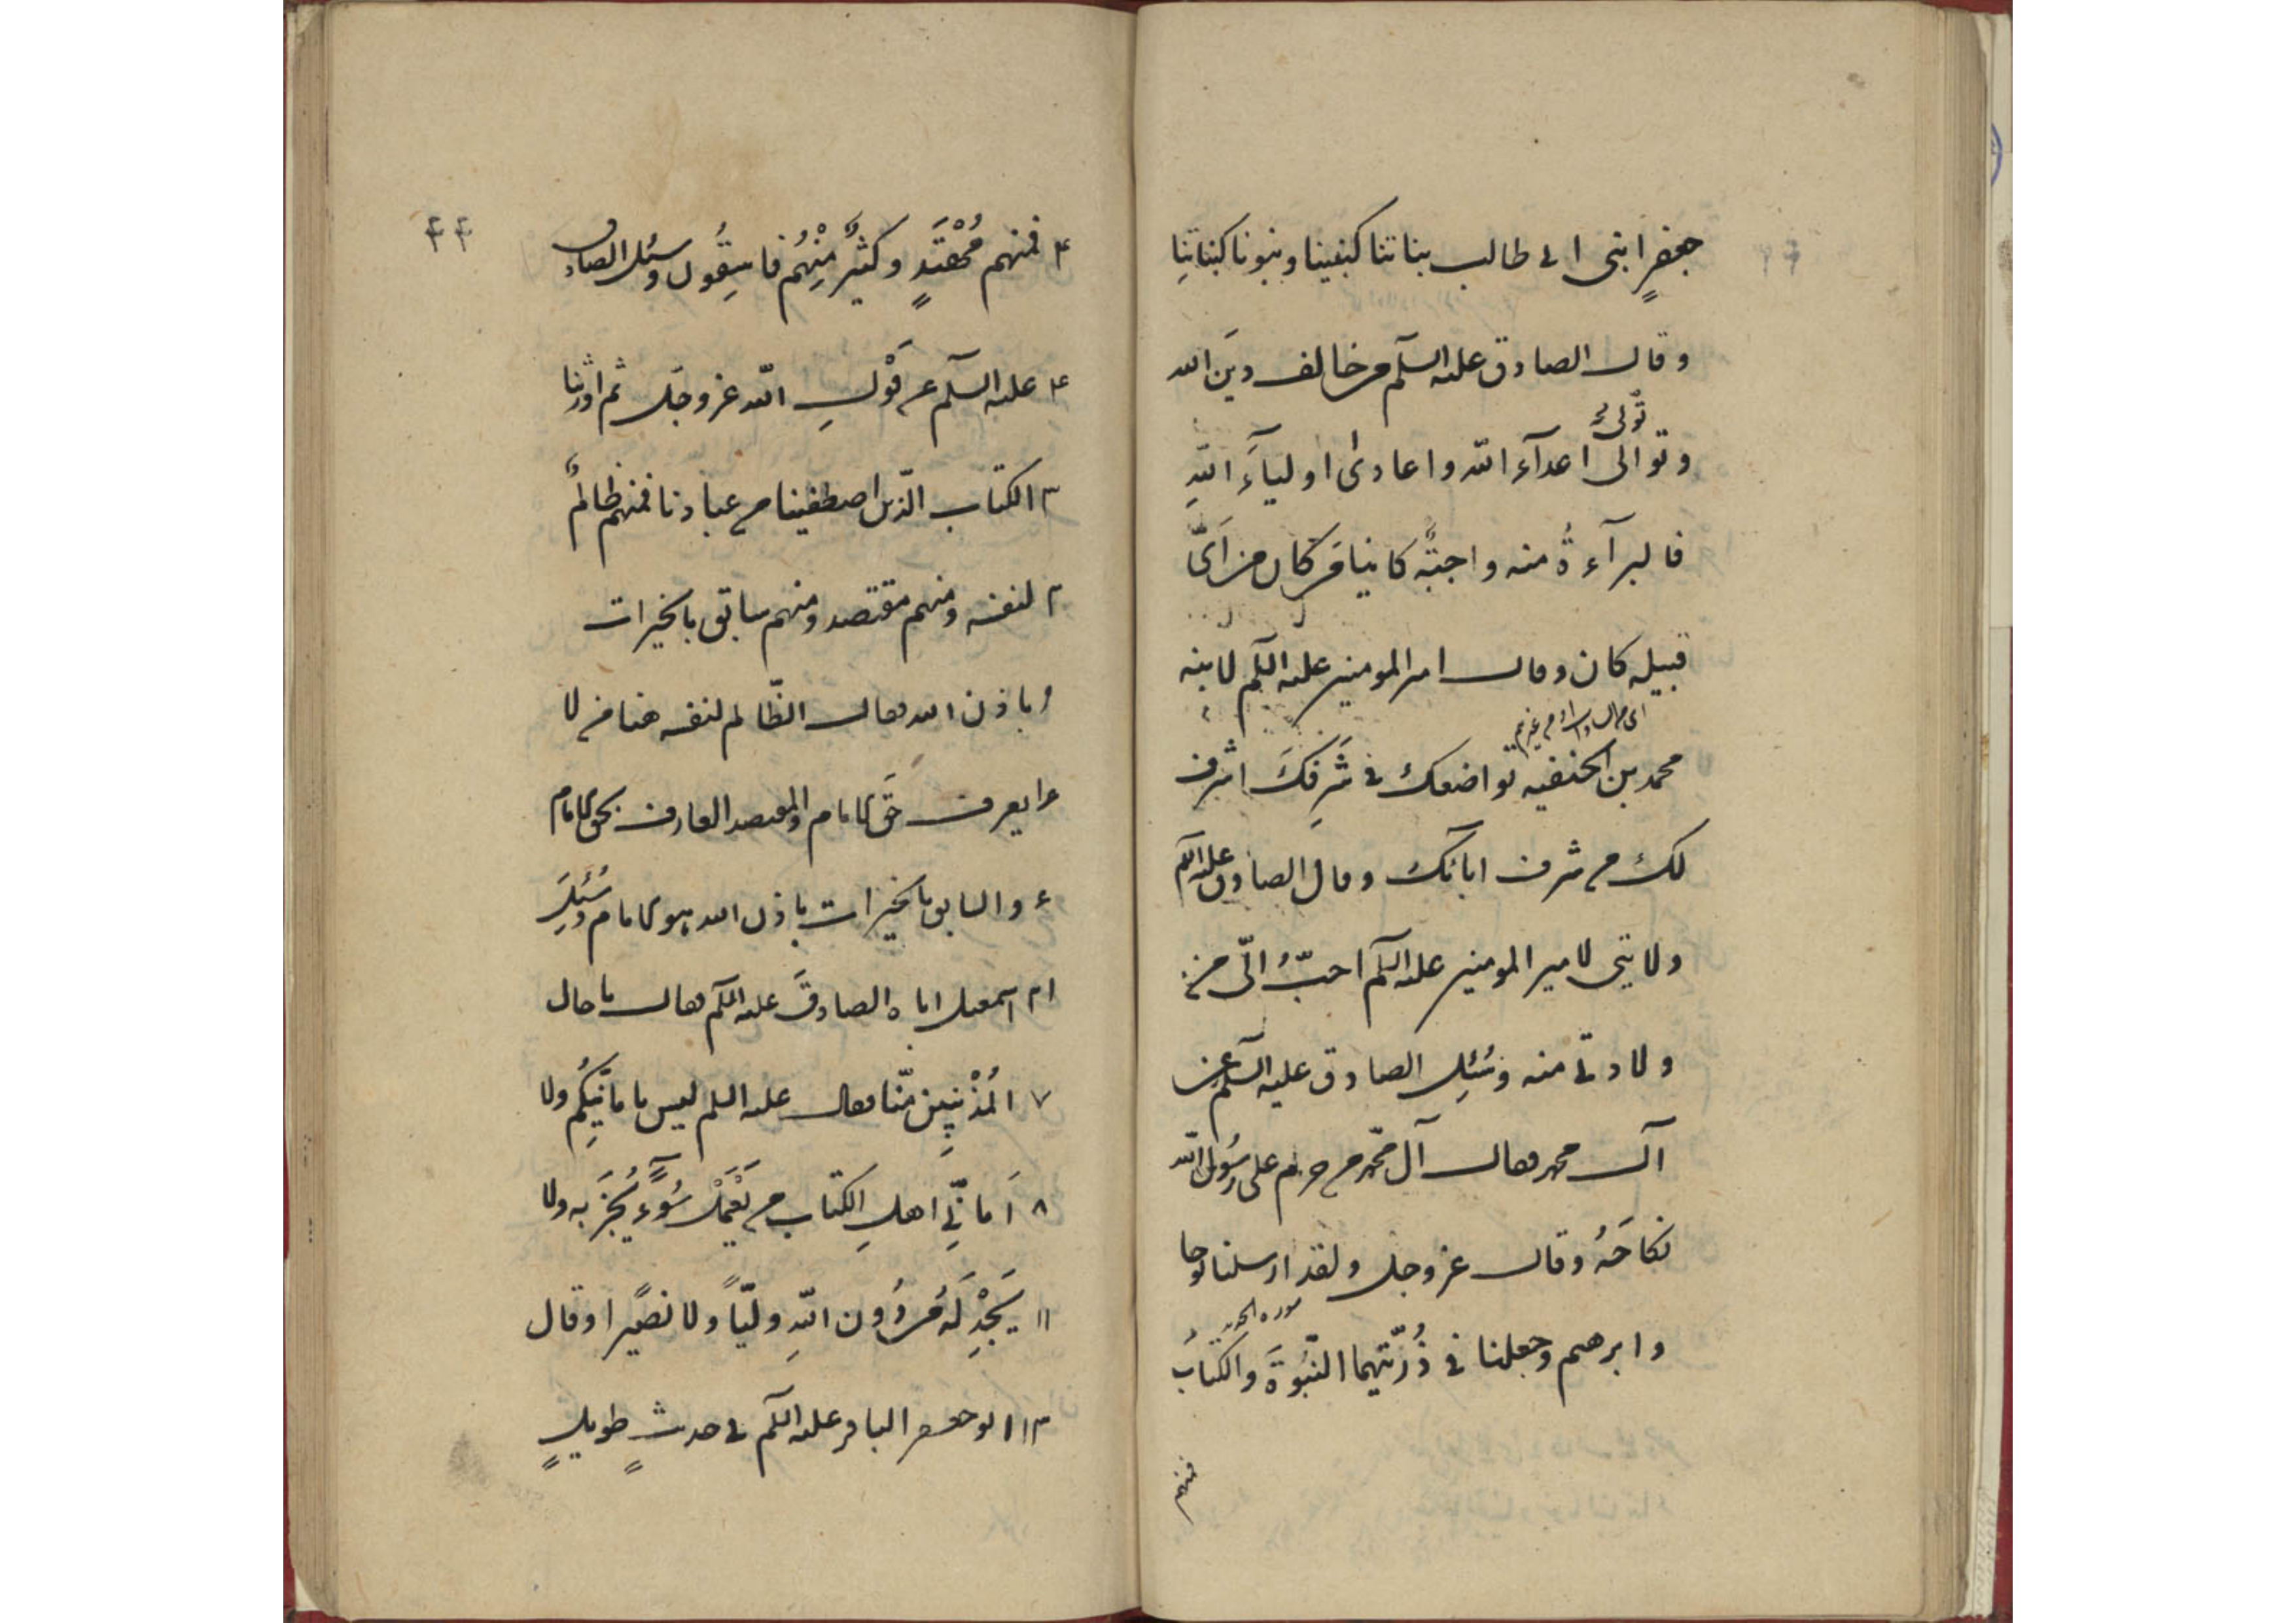 جعفرٍ ابنى ابى طالب بناتنا كبنينا وبنونا كبناتِنا
وقال الصادق عليه السلم من خالف دينَ الله
تولى
وتوالى اعدآء الله واعادى اولياءَ اللهِ
فالبرآءةُ منه واجبةٌ كاينا مَن كان من اىّ
قبيله كان وقال امير المومنين عليه السلم لابنه
محمد بن الحنفيه تواضعك فى شَرَفِكَ اشرف
لك من شرف ابائك وقال الصادق عليه السلم
ولايتى لامير المومنين عليه السلم احبُّ الىّ من
ولادتى منه وسُئِل الصادق عليه السلم عن
آل محمد فقال آل محمّد من حرم على رسُول الله
نكاحَهُ وقال عز وجل ولقد ارسلنا نوحا
سوره الحديد
وابرهيم وجعلنا فى ذُرّيّتهما النّبُوّةَ والكتابَ
فمنهم
۴۴
فمنهم مُهْتَدٍ وكثيرٌ مِنْهُم فاسِقُون وسئل الصادق
عليه السلم عن قَوْلِ الله عز وجل ثم اورثنا
الكتاب الّذين اصطفينا من عبادنا فمنهم ظالمٌ
لنفسه ومنهم مقتصد ومنهم سابق بالخيرات
باذن الله فقال الظّالم لنفسه هنا من لا
يعرف حَقّ الامام والمقتصد العارف بحق الامام
والسابق بالخيرات باذن الله هو الامام وسُئِلَ
اسمعيل اباه الصادقَ عليه السلم فقال ما حال
المُذْنِبِين مِنّا فقال عليه السلم ليس بامانيّكُم ولا
اَمانّىِ اهلِ الكتاب من يَعْمَلْ سُوءً يُجْزَ به ولا
يَجِدْ لَهُ من دُون اللهِ وليّاً ولا نصيرًا وقال
ابو جعفر الباقر عليه السلم فى حديثٍ طويلٍ